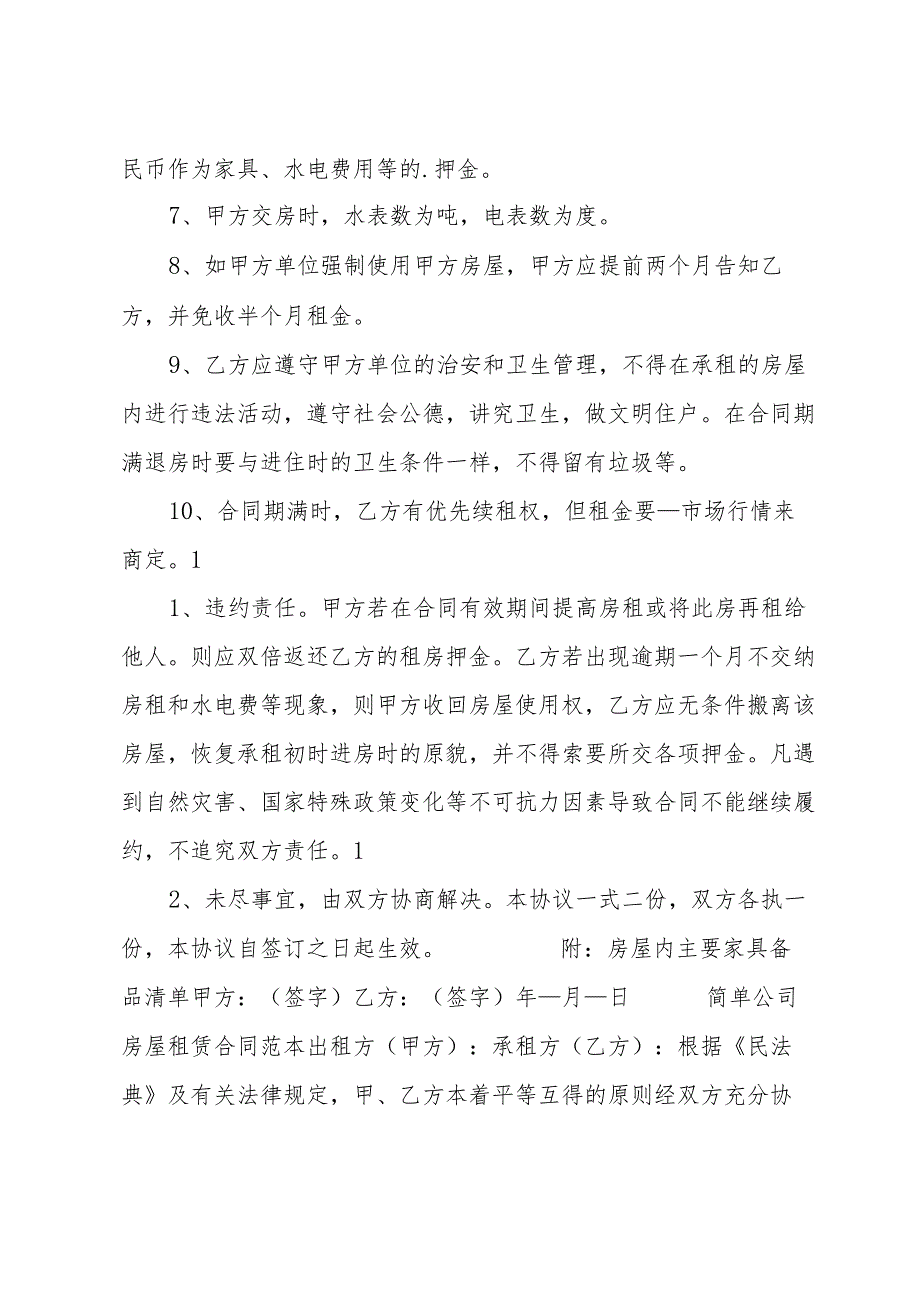 民币作为家具、水电费用等的.押金。
7、甲方交房时，水表数为吨，电表数为度。
8、如甲方单位强制使用甲方房屋，甲方应提前两个月告知乙
方，并免收半个月租金。
9、乙方应遵守甲方单位的治安和卫生管理，不得在承租的房屋
内进行违法活动，遵守社会公德，讲究卫生，做文明住户。在合同期
满退房时要与进住时的卫生条件一样，不得留有垃圾等。
10、合同期满时，乙方有优先续租权，但租金要—市场行情来
商定。1
1、违约责任。甲方若在合同有效期间提高房租或将此房再租给
他人。则应双倍返还乙方的租房押金。乙方若出现逾期一个月不交纳
房租和水电费等现象，则甲方收回房屋使用权，乙方应无条件搬离该
房屋，恢复承租初时进房时的原貌，并不得索要所交各项押金。凡遇
到自然灾害、国家特殊政策变化等不可抗力因素导致合同不能继续履
约，不追究双方责任。1
2、未尽事宜，由双方协商解决。本协议一式二份，双方各执一
份，本协议自签订之日起生效。 附：房屋内主要家具备
品清单甲方：（签字）乙方：（签字）年—月—日 简单公司
房屋租赁合同范本出租方（甲方）：承租方（乙方）：根据《民法
典》及有关法律规定，甲、乙方本着平等互得的原则经双方充分协